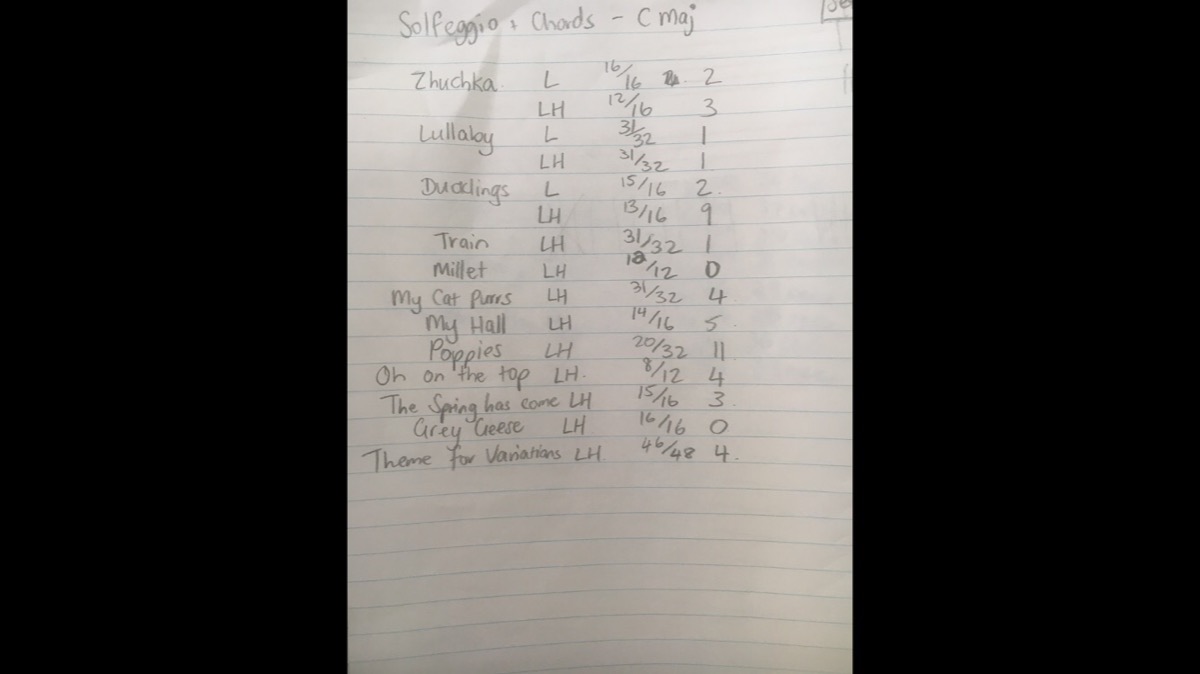 Solfeggio + Chords - C Maj
Zhuchka L 16/16 2
LH 12/16 3
Lullaby L 31/32 1
LH 31/32 1
Ducklings L 15/16 2.
LH 13/16 9
Train LH 31/32 1
Millet LH /12 0
My Cat Purrs LH 31/32 4
My Hall LH 14/16 5
Poppies LH 20/32 11
Oh on the top LH. 8/12 4
The Spring has come LH 15/16 3
Grey Geese LH 16/16 0
Theme for Variations LH 46/48 4.